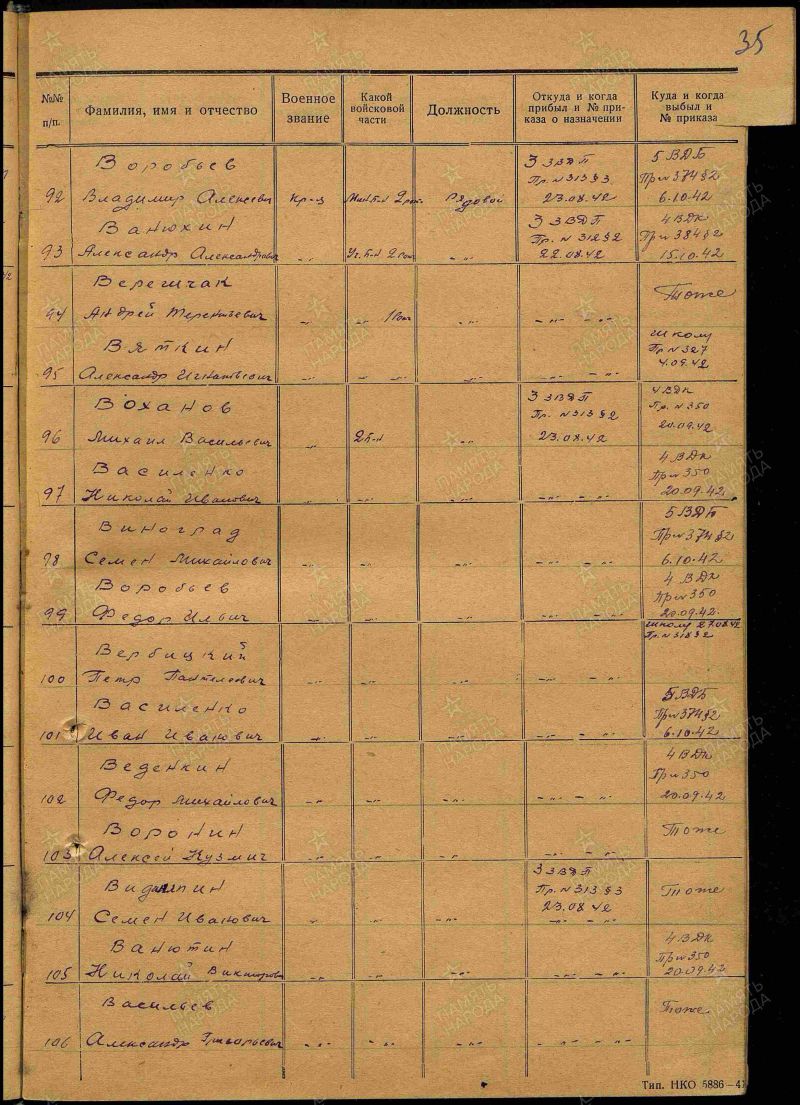 35
№№ п/п.
Фамилия, имя и отчество
Военное звание
Какой войсковой части
Должность
Откуда и когда прибыл и № приказа о назначении
Куда и когда выбыл и № приказа
Воробьев 3 ЗВДП 5 ВДБ
Пр. N 313 § 3 Пр N 374 § 2
92 Владимир Алексеевич Кр-ц 2 рот Рядовой 23.08.42 6.10.42
Ванюхин 3 ЗВДП 4 ВДК
Пр. N 312 § 2 Пр N 384 § 2
93 Александр Александрович -"- Уч. б-н 2 рот -"- 22.08.42 15.10.42
Верещак Тоже
94 Андрей Терентьевич -"- 1 рот -"- -"- -"-
Вяткин школу
Пр N 327
95 Александр Игнатьевич -"- -"- -"- -"- -"- 4.09.42
Воханов 3 ЗВДП 4 ВДК
Пр. N 313 § 2 Пр. N 350
96 Михаил Васильевич -"- 2 б-н -"- 23.08.42 20.09.42
Василенко 4 ВДК
Пр N 350
97 Николай Иванович -"- -"- -"- -"- -"- 20.09.42
Виноград 5 ВДБ
Пр N 374 § 2
98 Семен Михайлович -"- -"- -"- -"- -"- 6.10.42
Воробьев 4 ВДК
Пр N 350
99 Федор Ильич -"- -"- -"- -"- -"- 20.09.42.
школу 27.08.42
Вербицкий Пр. N 318 § 2
100 Петр Пантелеевич -"- -"- -"- -"- -"-
Василенко 5 ВДБ
Пр N 374 § 2
101 Иван Иванович -"- -"- -"- -"- -"- 6.10.42
Веденкин 4 ВДК
Пр N 350
102 Федор Михайлович -"- -"- -"- -"- -"- 20.09.42
Воронин Тоже
103 Алексей Кузмич -"- -"- -"- -"- -"-
3 ЗВДП
Пр. N 313 § 3 Тоже
23.08.42
104 Семен Иванович -"- -"- -"- -"- -"-
Ванютин 4 ВДК
Пр N 350
105 Николай Викторович -"- -"- -"- -"- -"- 20.09.42
Васильев Тоже
106 Александр Григорьевич -"- -"- -"- -"- -"-
Тип. НКО 5886—41
ПАМЯТЬ НАРОДА